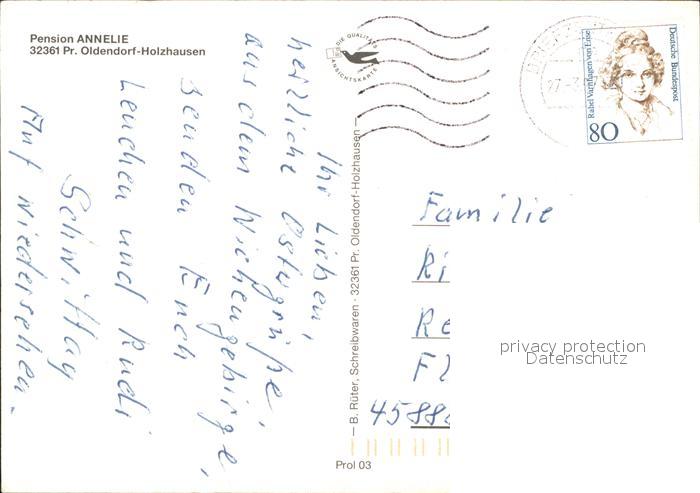 Pension ANNELIE
32361 Pr. Oldendorf-Holzhausen
Ihr Lieben,
herzliche Ostergrüße,
aus dem Wiehengebirge,
senden Euch
Lenchen und Rudi
Schwittay
Auf Wiedersehen.
— B. Rüter, Schreibwaren · 32361 Pr. Oldendorf-Holzhausen —
Prol 03
DIE QUALITÄTS
ANSICHTSKARTE
27.
Rahel Varnhagen von Ense
Deutsche Bundespost
80
Familie
Ri
Re
Fl
4588
privacy protection
Datenschutz